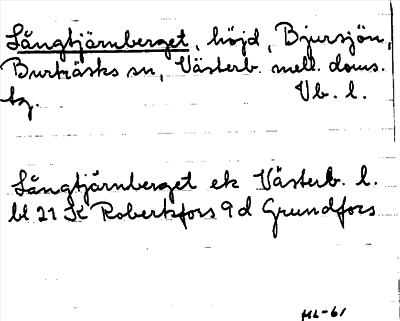 Långtjärnberget, höjd, Bjursjön,
Burträsks sn, Västerb. mell. doms.
tg. Vb. l.
Långtjärnberget ek Västerb. l.
bl 21 K Robertsfors 9 d Grundfors
HL-61